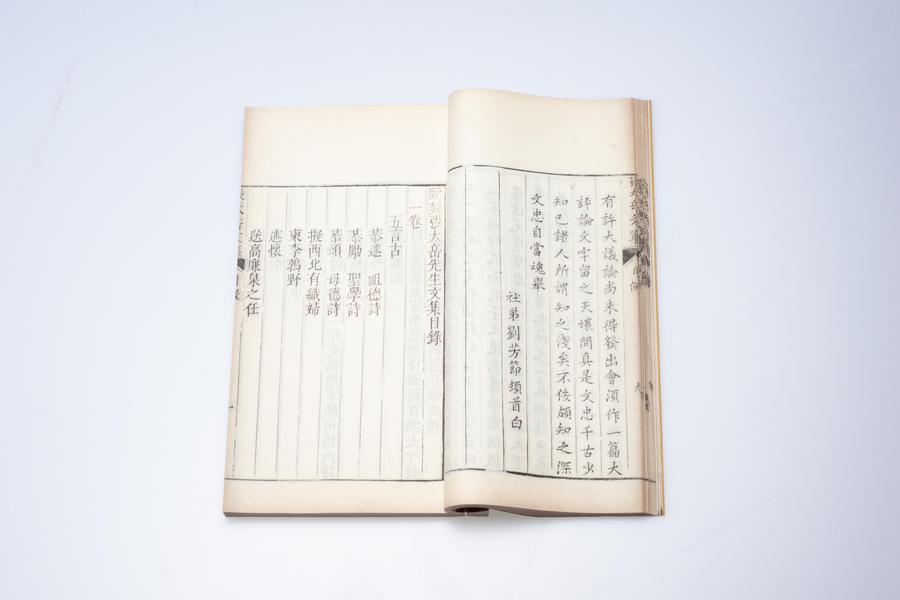 有許大議論尚未得發出會須作一篇大
評論文字留之天壤間真是文忠千古少
知已諸人所謂知之淺矣不佞頗知之深
文忠自當魂舉
社弟劉芳節頓首白
新刻張太岳先生文集目錄
一卷
五言古
恭述 祖德詩
恭勵 聖學詩
恭頌 母德詩
擬西北有織婦
東李鶴野
述懷
送高廉泉之任